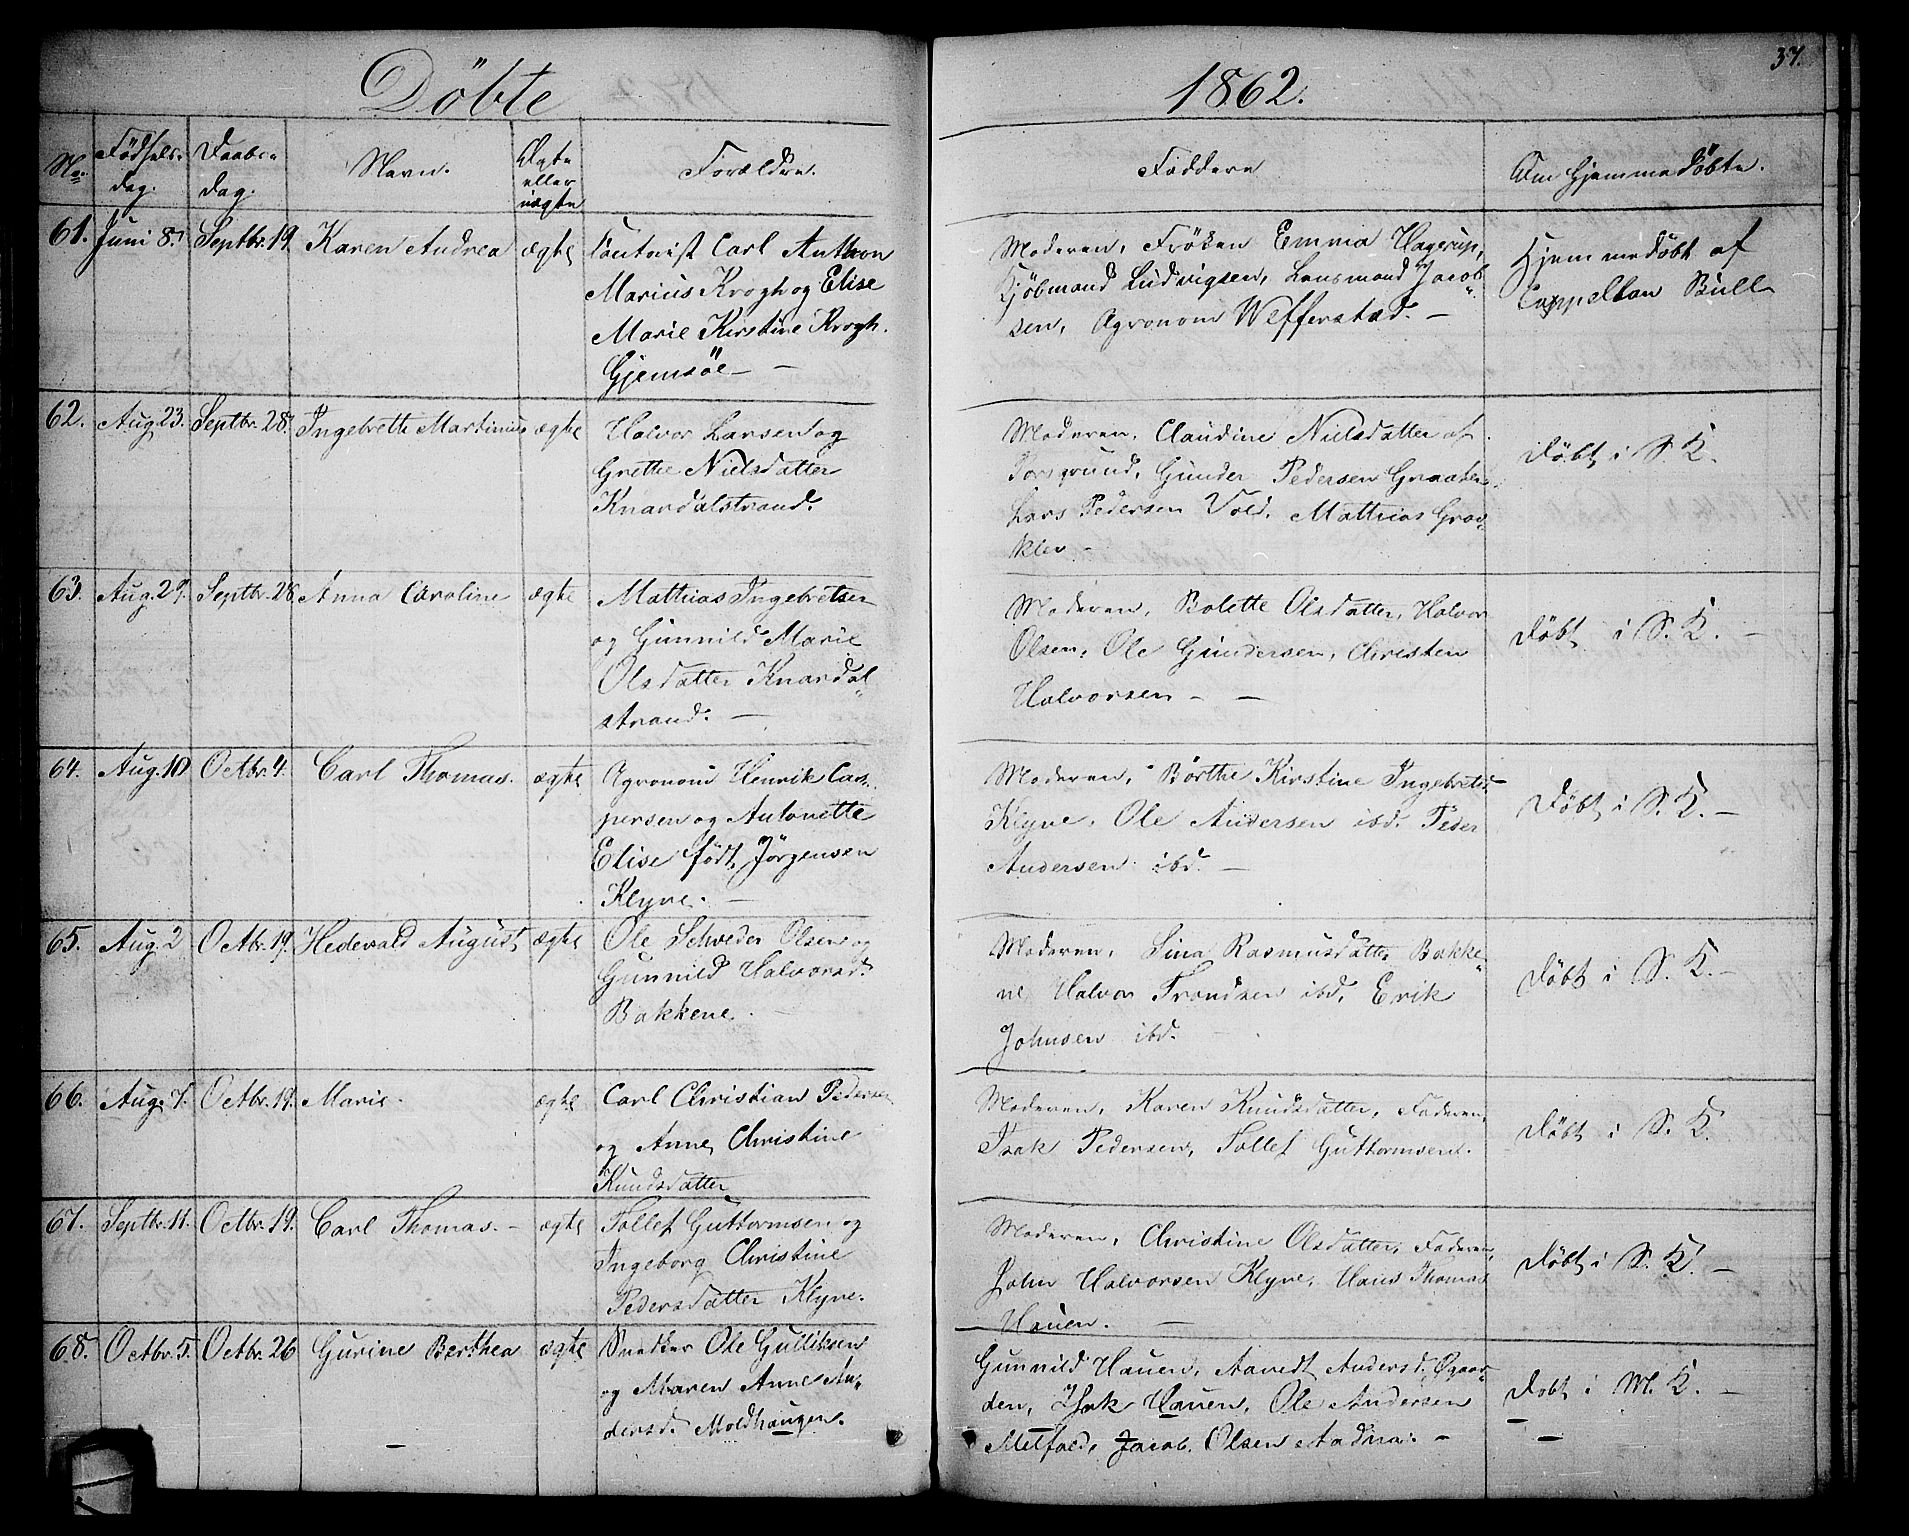 Döbte
1862.
37.
No. Födsels- dag. Daabs- dag. Navn. Ægte eller uægte Forældre. Faddere Om Hjemmedöbte.
61. Juni 8. Septbr. 19. Karen Andrea ægte Carl Anthon
Marius Krogh og Elise
Marie Kirstine Krogh.
Gjemsöe –
Moderen, Fröken Emma Hagerup,
Kjöbmand Ludvigsen, Lensmand Jacob-
sen, Agronom Wefferstad. –
Hjemmedöbt af
Cappellan Bull
62. Aug. 23. Septbr. 28. Ingebrethe Martinus ægte Halvor Larsen og
Grethe Nielsdatter
Knardalstrand.
Moderen, Claudine Nielsdatter af
Porsgrund, Gunder Pedersen Graaten
Lars Pedersen Vold, Mathias Grav-
klev –
Döbt i S. K.
63. Aug. 29. Septbr. 28 Anna Caroline ægte Mathias Ingebretsen
og Gunnild Marie
Olsdatter Knardal-
strand. –
Moderen, Bolette Olsdatter, Halvor
Olsen, Ole Gundersen, Christen
Halvorsen – –
Döbt i S. K. –
64. Aug. 10 Octbr. 4. Carl Thomas. ægte Agronom Henrik Cas-
persen og Antonette
Elise födt Jörgensen
Klyve. –
Moderen, Börthe Kirstine Ingebretsd.
Klyve, Ole Andersen ibd. Peder
Andersen ibd. –
Döbt i S. K. –
65. Aug. 2 Octbr. 19. Hedevald August ægte Ole Schweder Olsen og
Gunnild Halvorsd.
Bakkene. –
Moderen, Lina Rasmusdatter Bakke-
ne, Halvor Trondsen ibd, Erik
Johnsen ibd. –
Döbt i S. K. –
66. Aug. 7. Octbr. 19. Marie. ægte Carl Christian Pedersen
og Anne Christine
Knudsdatter
Moderen, Karen Knudsdatter, Faderen,
Isak Pedersen, Tollef Guttormsen.
Döbt i S. K.
67. Septbr. 11. Octbr. 19. Carl Thomas. – ægte Tollef Guttormsen og
Ingeborg Christine
Pedersdatter Klyve.
Moderen, Christine Olsdatter, Faderen,
John Halvorsen Klyve, Hans Thomas
Hauen. –
Döbt i S. K. –
68. Octbr. 5. Octbr. 26 Gurine Berthea ægte Snedker Ole Gulliksen
og Maren Anne An-
dersd. Moldhaugen.
–
Gunnild Hauen, Anders d. Ögaar-
den, Isak Hauen, Ole Andersen
Melfald, Jacob Olsen –
Döbt i M. K. –
– –